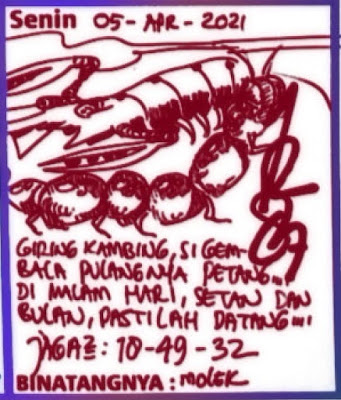 Senin 05-APR-2021
GIRING KAMBING, SI GEM-
BALA PULANGNYA PETANG...
DI MALAM HARI, SETAN DAN
BULAN, PASTILAH DATANG...
JAGA2: 10-49-32
BINATANGNYA: MOLEK